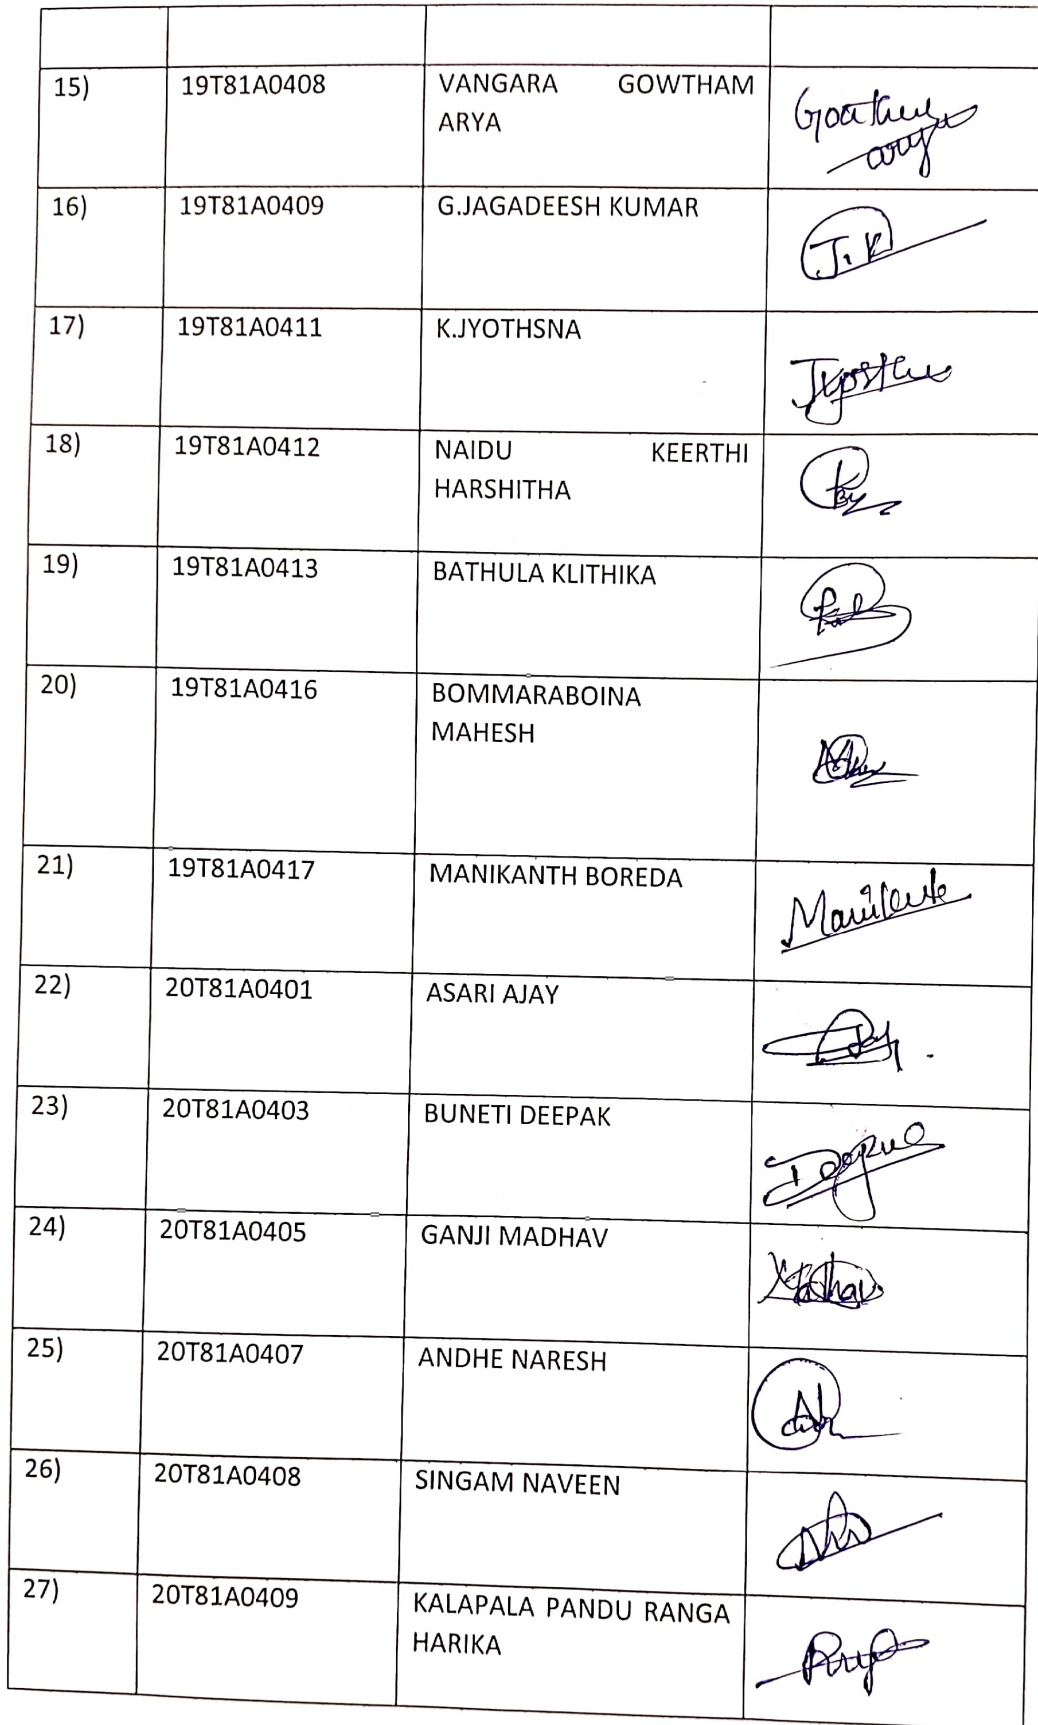 15) 19T81A0408 VANGARA GOWTHAM
ARYA
16) 19T81A0409 G.JAGADEESH KUMAR
J.K
17) 19T81A0411 K.JYOTHSNA
18) 19T81A0412 NAIDU KEERTHI
HARSHITHA
19) 19T81A0413 BATHULA KLITHIKA
20) 19T81A0416 BOMMARABOINA
MAHESH
21) 19T81A0417 MANIKANTH BOREDA
22) 20T81A0401 ASARI AJAY
23) 20T81A0403 BUNETI DEEPAK
24) 20T81A0405 GANJI MADHAV
Madhav
25) 20T81A0407 ANDHE NARESH
26) 20T81A0408 SINGAM NAVEEN
27) 20T81A0409 KALAPALA PANDU RANGA
HARIKA